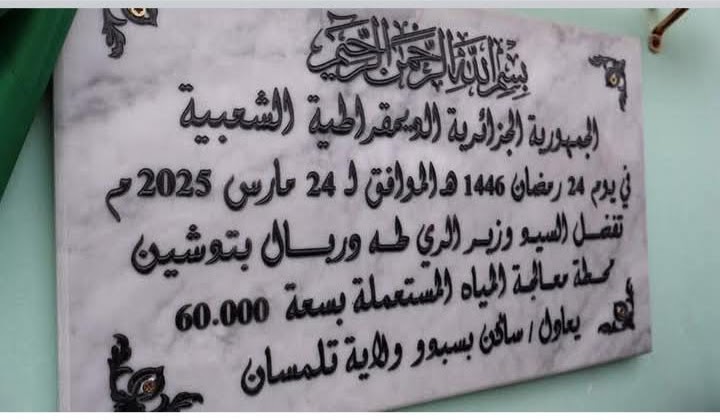 بسم الله الرحمن الرحيم
الجمهورية الجزائرية الديمقراطية الشعبية
في يوم 24 رمضان 1446 هـ الموافق لـ 24 مارس 2025 م
تفضل السيد وزير الري طه دربال بتدشين
محطة معالجة المياه المستعملة بسعة 60.000
يعادل / ساكن بسبدو ولاية تلمسان